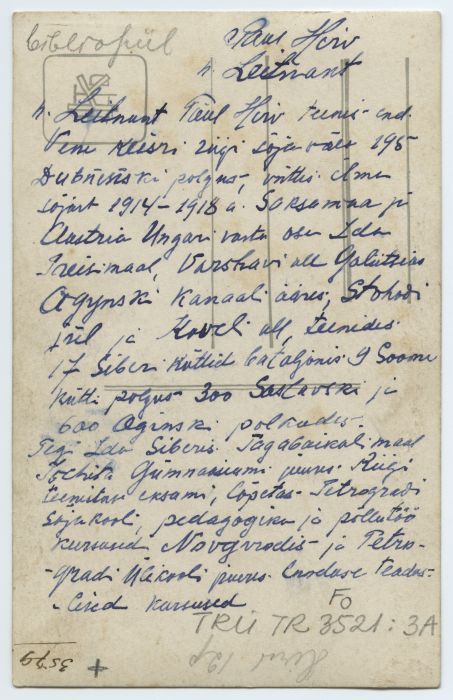 bibliofiil
Paul Hirv
n. Leitnant
n. Leitnant Paul Hirv teenis end.
Vene keisri riigi sõjaväes 196
Dubnenski polgus, võttis Ilma
sõjast 1914-1918 a. Saksamaa ja
Austria Ungari vastu osa Ida
Preisimaal, Varshavi all Galiitsias
Ogynski kanaali ääres, Stohodi
jõel ja Koveli all, teenides
17 Siberi Küttid bataljonis 9 Soome
Kütti polgus 300 Saslavski ja
600 Oginski polkudes.
Tegi Ida Siberis Tagabaikali maal
Tschita Gümnaasiumi juures Riigi
teenistuse eksami, lõpetas Petrogradi
Sõjakooli, pedagogika ja põllutöö
kursused Novgorodis ja Petro-
-gradi Ülikooli juures looduse teadus-
-lised kursused
FO
TRÜ TR 3521:3A
35.79